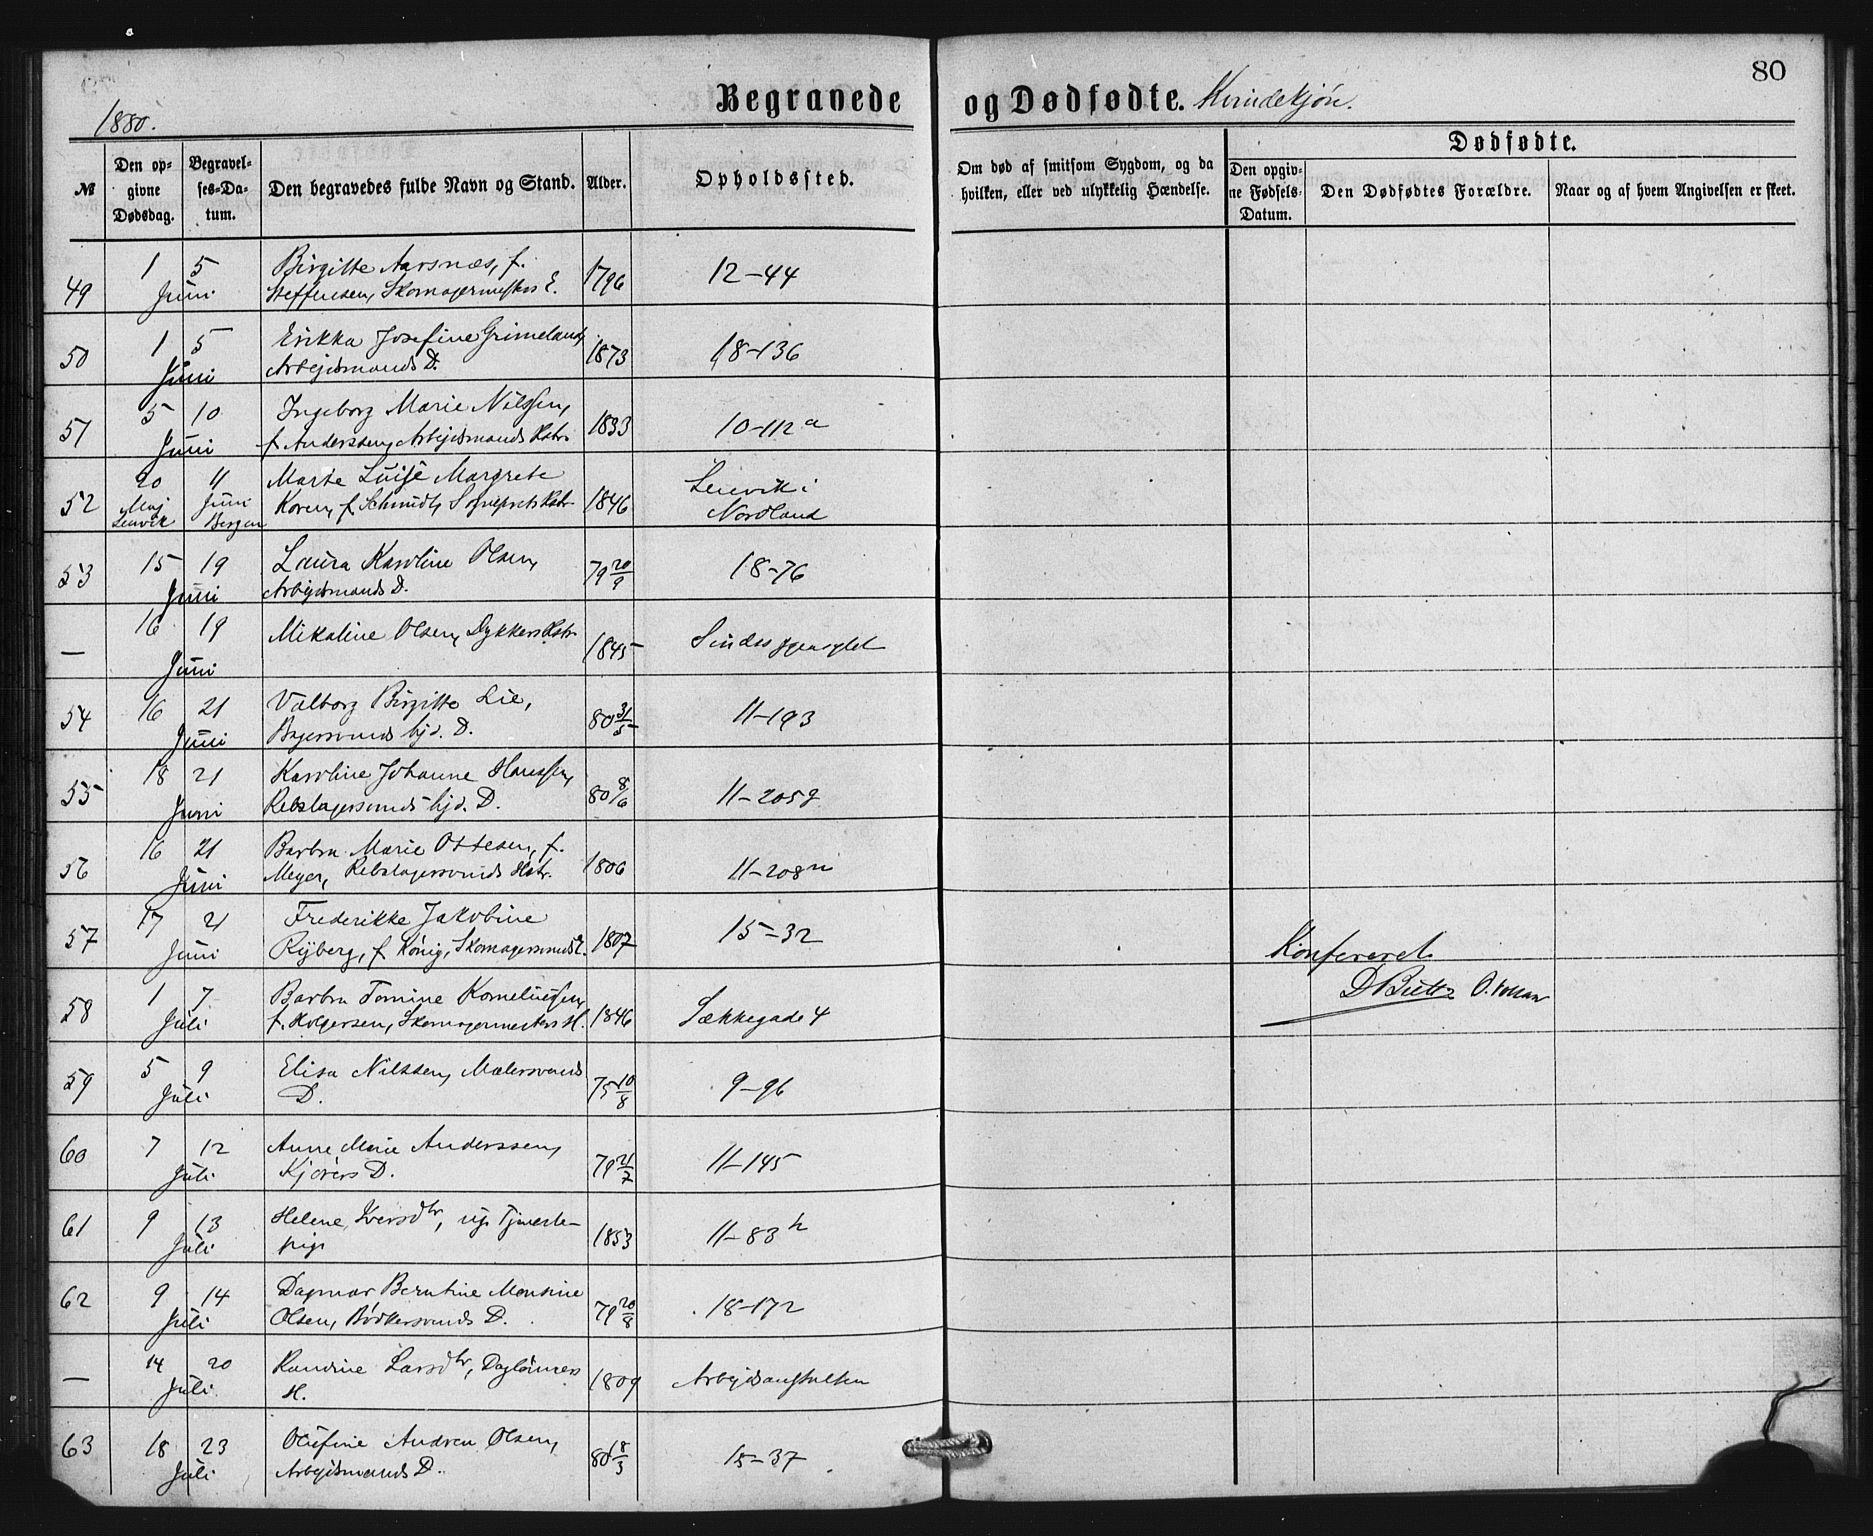 80
1880.
Begravede og Dødfødte. Kvindekjøn.
№
Den opgivne Dødsdag.
Begravelses-Datum.
Den begravedes fulde Navn og Stand.
Alder.
Opholdssted.
Om død af smitsom Sygdom, og da hvilken, eller ved ulykkelig Hændelse.
Dødfødte.
Den opgivne Fødsels-Datum.
Den Dødfødtes Forældre.
Naar og af hvem Angivelsen er skeet.
49 1 5 Juni Birgitte Aarsnæs, f.
Steffensen, Skomagermesters E. 1796 12-44
50 1 5 Juni Erikka Josefine Grimeland,
Arbejdsmands D. 1873 18-136
51 5 10 Juni Ingeborg Marie Nilssen,
f. Anderssen, Arbejdsmands Hstr. 1833 10-112a
52 20 Maj Lenvik 11 Juni Bergen Marte Luise Margrete
Koren, f. Schmidt, Sognepræsts Hstr. 1846 Lenvik i
Nordland
53 15 19 Juni Laura Karoline Olsen,
Arbejdsmands D. 79 20/9 18-76
— 16 19 Juni Mikaline Olsen, Dykkers Hstr. 1845 Sindssygeasylet
54 16 21 Juni Valborg Birgitte Lie,
Bagersvends hjd. D. 80 31/5 11-193
55 18 21 Juni Karoline Johanne Hanssen,
Rebslagersvends hjd. D. 80 8/6 11-205g
56 16 21 Juni Barbra Marie Ottesen, f.
Meyer, Rebslagersvends Hstr. 1806 11-208m
57 17 21 Juni Frederikke Jakobine
Ryberg, f. König, Skomagersvends E. 1807 15-32
Konfereret
58 1 7 Juli Barbra Tomine Korneliussen,
f. Holgersen, Skomagermesters H. 1846 Sækkegade 4
59 5 9 Juli Elisa Nilssen, Malersvends
D. 75 10/8 9-96
60 7 12 Juli Anne Marie Anderssen,
Kjørers D. 79 21/7 11-145
61 9 13 Juli Helene Iversdtr, ug. Tjeneste-
pige 1853 11-83h
62 9 14 Juli Dagmar Berntine Monsine
Olsen, Bødkersvends D. 79 20/8 18-172
— 14 20 Juli Randine Larsdtr, Dagløiners
H. 1809 Arbejdsanstalten
63 18 23 Juli Olufine Andrea Olsen,
Arbejdsmands D. 80 18/3 15-37